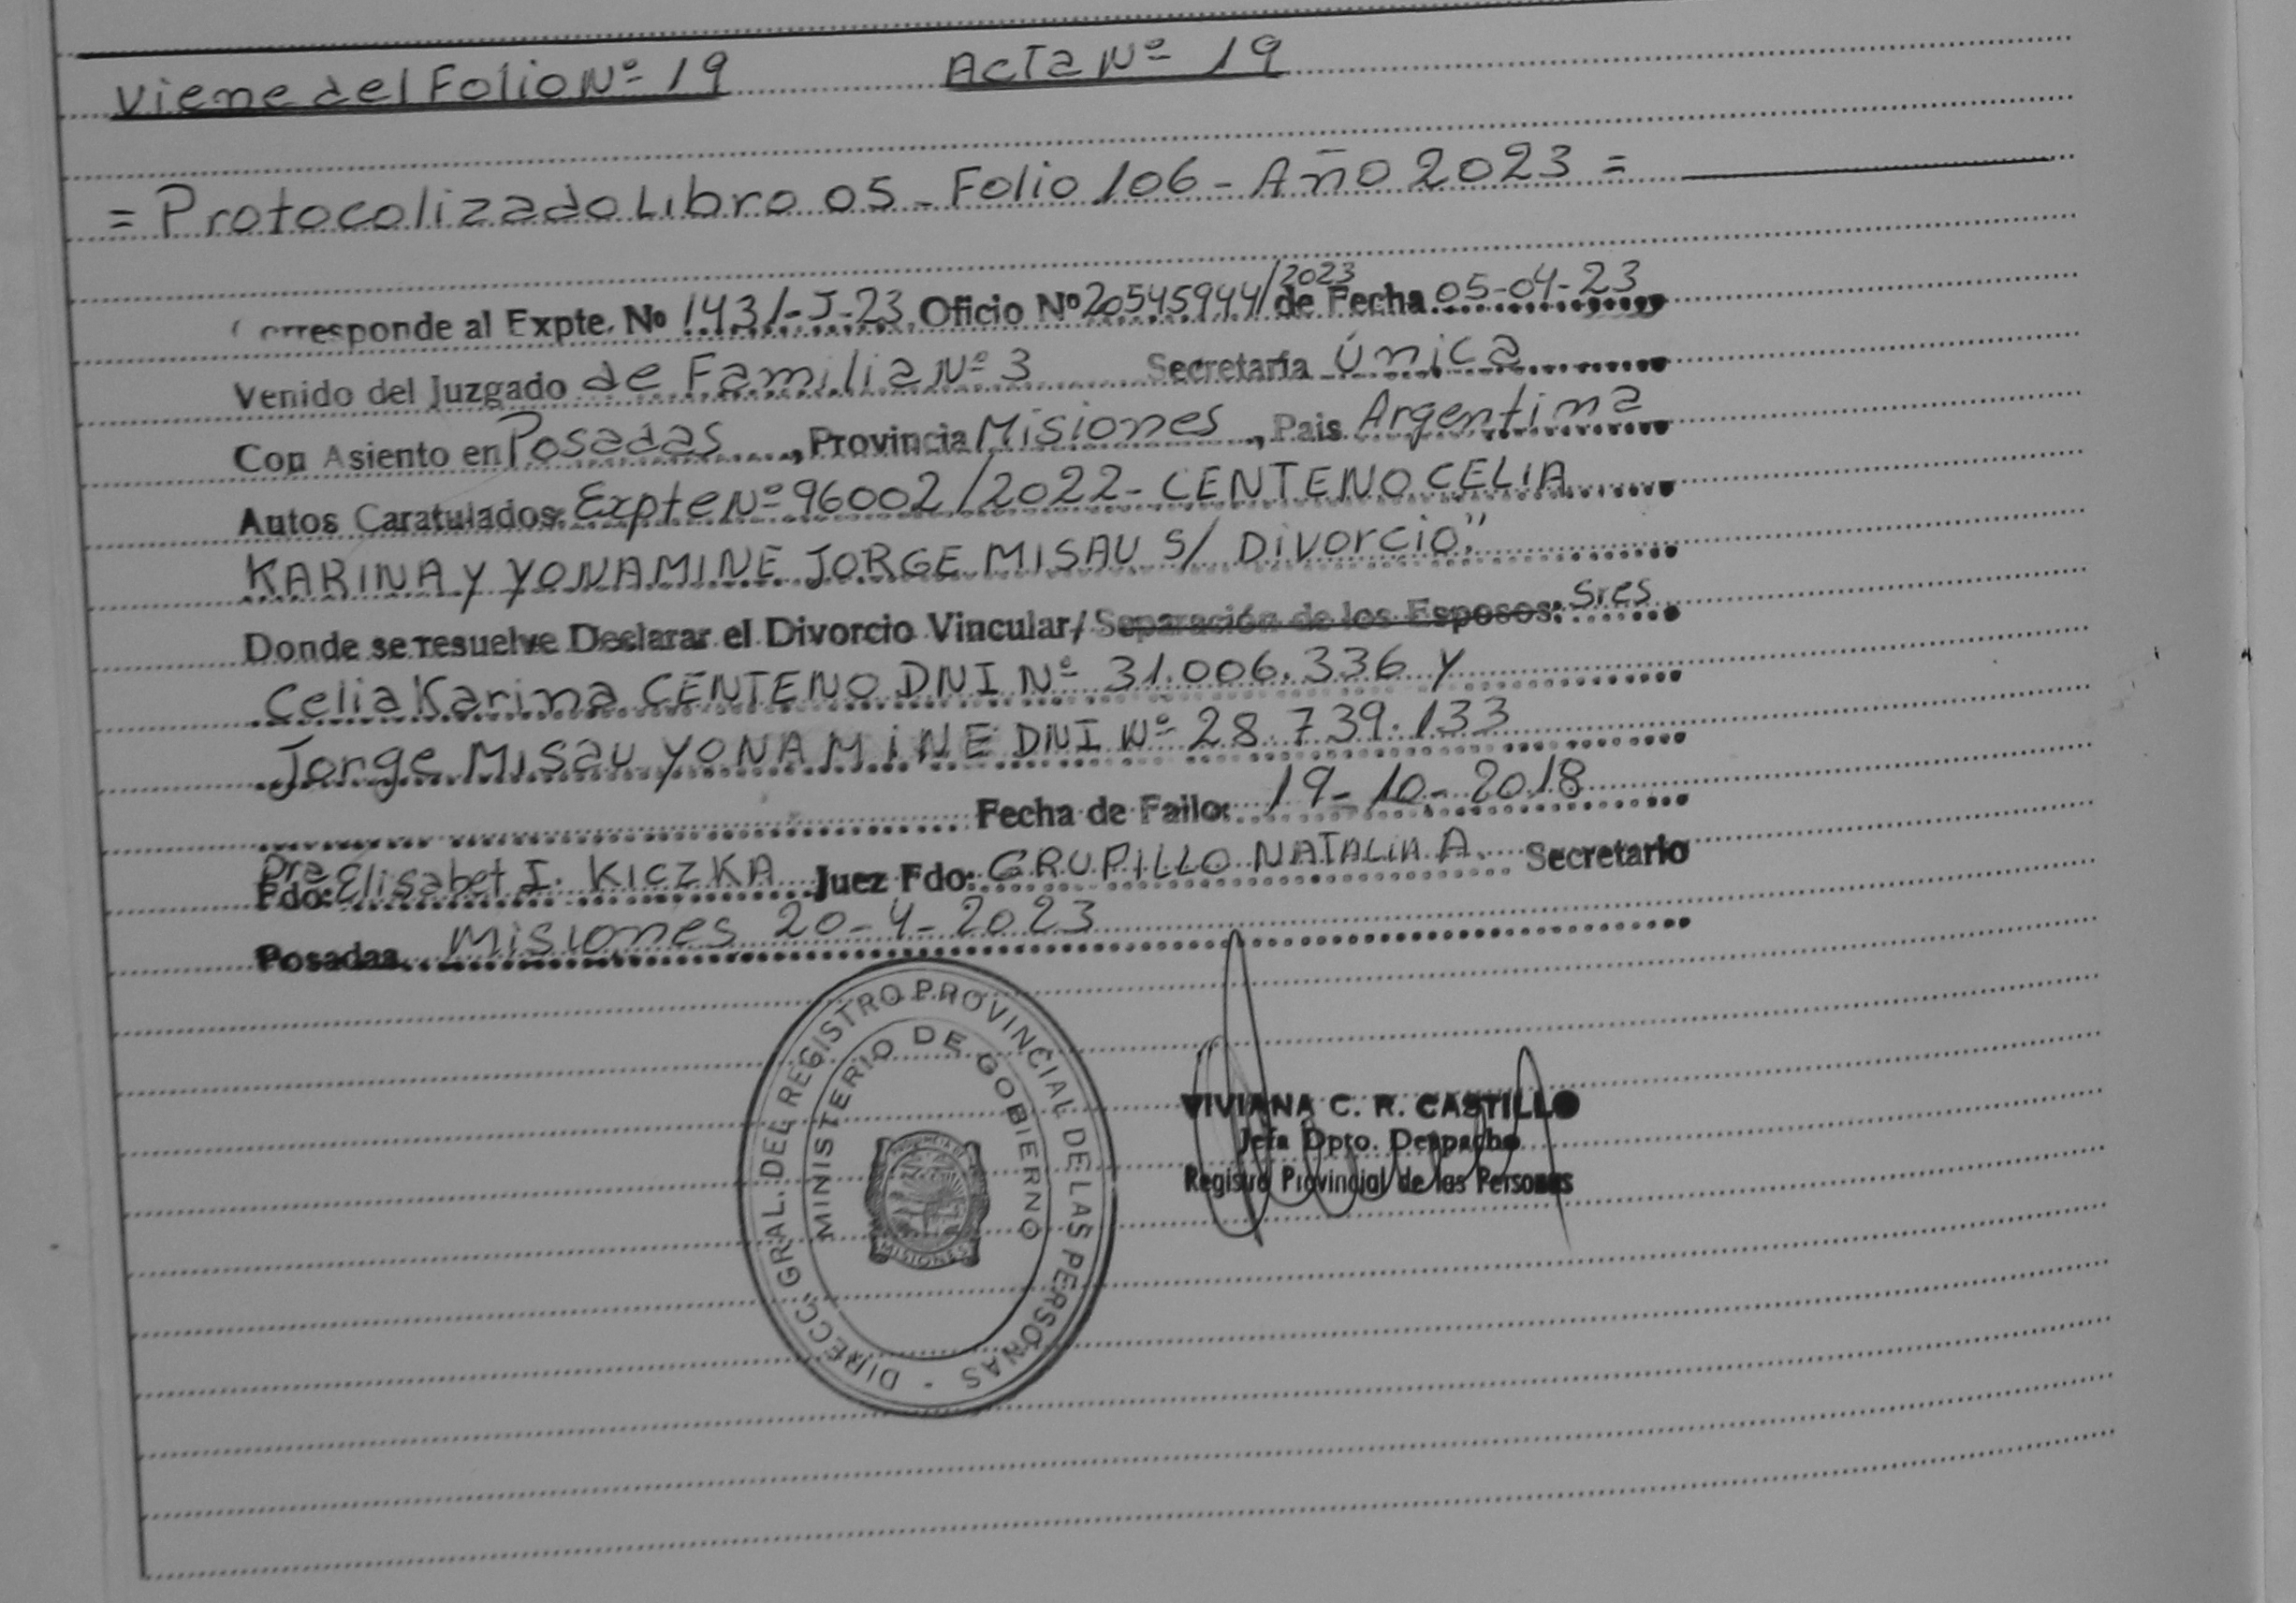 Viene del Folio Nº 19 Acta Nº 19
= Protocolizado Libro 05 - Folio 106 - Año 2023 =
Corresponde al Expte. Nº 1431-J-23 Oficio Nº 20545944/2023 de Fecha 05-04-23
Venido del Juzgado de Familia Nº 3 Secretaría Única
Con Asiento en Posadas, Provincia Misiones, Pais Argentina
Autos Caratulados: Expte Nº 96002/2022 - CENTENO CELIA
KARINA y YONAMINE JORGE MISAU S/ Divorcio."
Donde se resuelve Declarar el Divorcio Vincular/ Separación de los Esposos: Sres
Celia Karina CENTENO DNI Nº 31.006.336 y
Jorge Misau YONAMINE DNI Nº 28.739.133
Fecha de Fallo: 19-10-2018
Fdo: Dra Elisabet I. KICZKA Juez Fdo: GRUPILLO NATALIA A. Secretario
Posadas, Misiones 20-4-2023
DIRECC. GRAL. DEL REGISTRO PROVINCIAL DE LAS PERSONAS -
MINISTERIO DE GOBIERNO
PROVINCIA DE
MISIONES
VIVIANA C. R. CASTILLO
Jefa Dpto. Despacho
Registro Provincial de las Personas